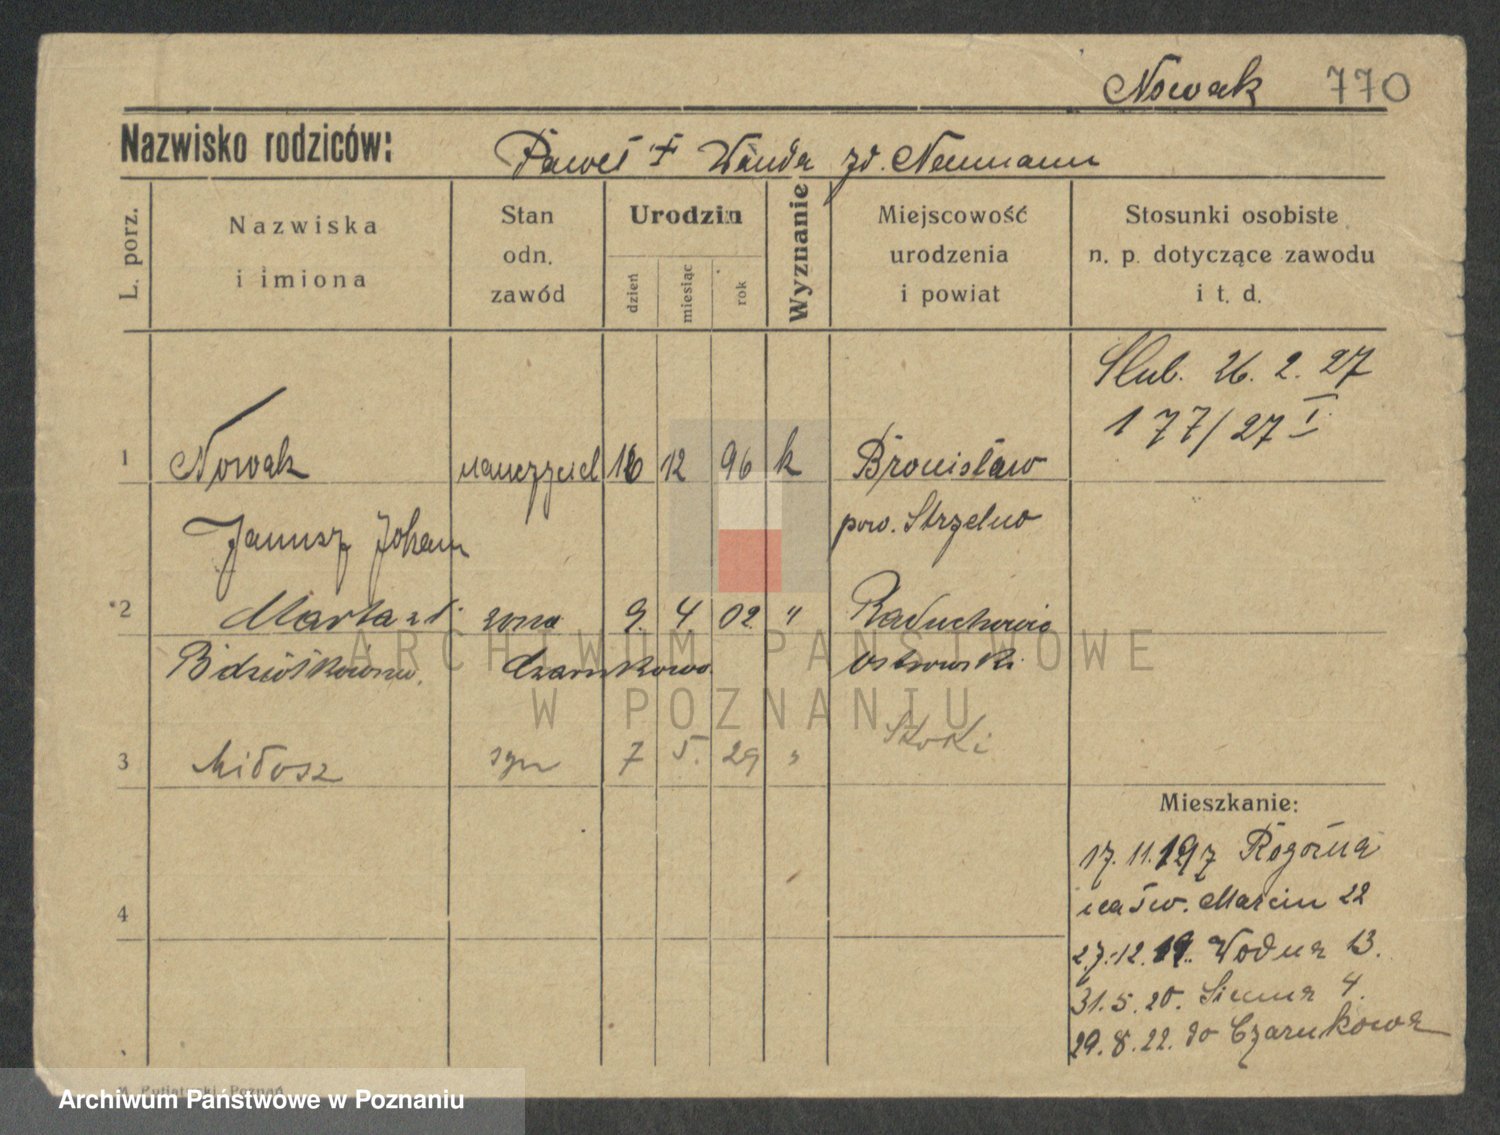 Nowak 770
Nazwisko rodziców: Paweł + Wanda zd. Neumann
L. porz.
Nazwiska
i imiona
Stan
odn.
zawód
Urodzin
dzień
miesiąc
rok
Wyznanie
Miejscowość
urodzenia
i powiat
Stosunki osobiste
n. p. dotyczące zawodu
i t. d.
Ślub. 26. 2. 27
177/27 I
1 Nowak nauczyciel 12 96 k Bronisław
Janusz Johann pow. Strzelno
2 Marta zd. żona 9. 4 02 "
Czarnkowo Ostrowski
3 Miłosz syn 7 5. 29 "
4
Mieszkanie:
17. 11. 19 Rogoźna
św. Marcin 22
27. 12. 19. Wodna 13.
31. 5. 20. Sienna 4.
29. 8. 22. do Czarnkowa
ARCHIWUM PAŃSTWOWE
W POZNANIU
Poznań
Archiwum Państwowe w Poznaniu